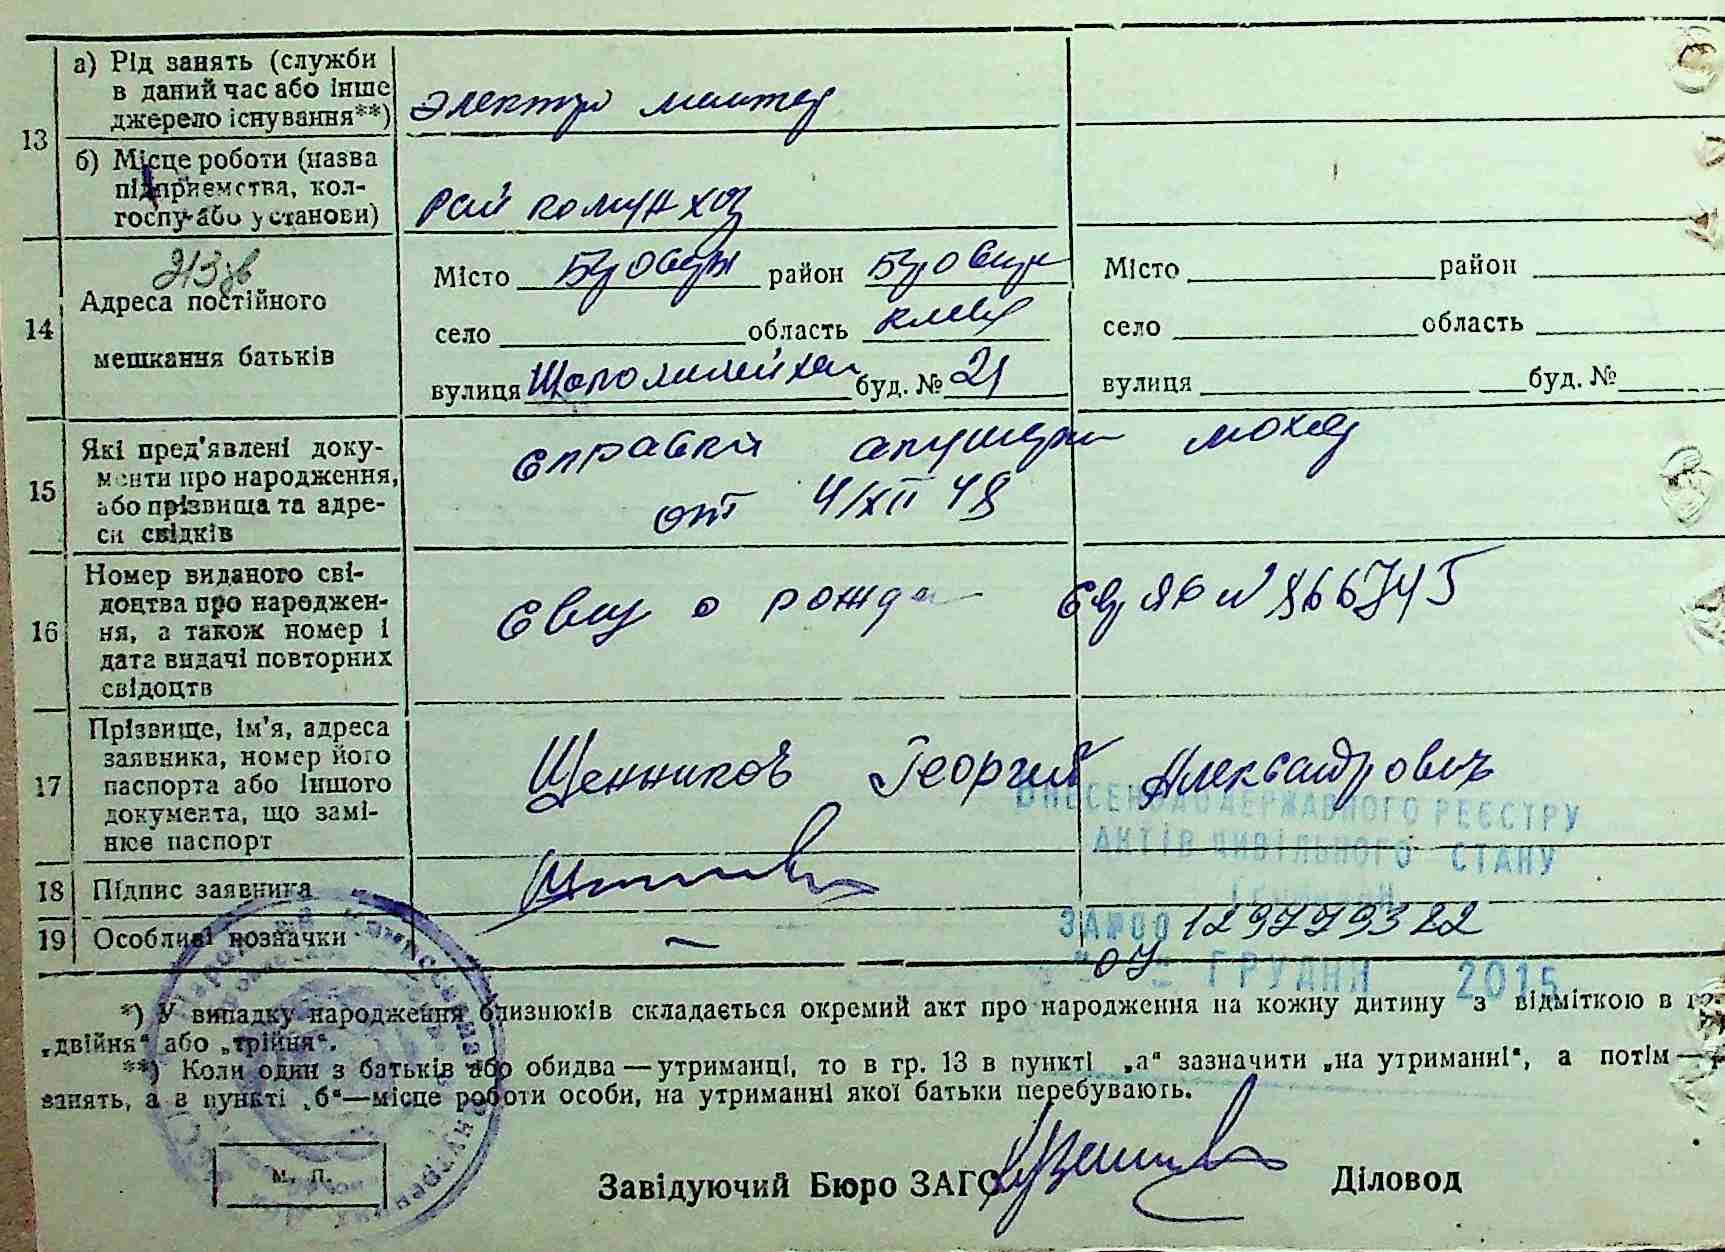 13
а) Рід занять (служби
в даний час або інше
джерело існування**)
электро монтер
б) Місце роботи (назва
підприємства, кол-
госпу або установи)
Рай комун хоз
14
Адреса постійного
мешкання батьків
Місто район
село область Киев
вулиця буд. № 21
Місто район
село область
вулиця буд. №
15
Які пред'явлені доку-
менти про народження,
або прізвища та адре-
си свідків
справка
от 4/XII 48
16
Номер виданого сві-
доцтва про народжен-
ня, а також номер і
дата видачі повторних
свідоцтв
о рожд
17
Прізвище, ім'я, адреса
заявника, номер його
паспорта або іншого
документа, що замі-
нює паспорт
Щенников Георгий Александрович
ВНЕСЕНО ДО ДЕРЖАВНОГО РЕЄСТРУ
АКТІВ ЦИВІЛЬНОГО СТАНУ
18 Підпис заявника
ЗА №00 129779322
19 Особливі позначки —
07 ГРУДНЯ 2015
*) У випадку народження близнюків складається окремий акт про народження на кожну дитину з відміткою в
„двійня“ або „трійня“.
**) Коли один з батьків або обидва — утриманці, то в гр. 13 в пункті „а“ зазначити „на утриманні“, а потім —
занять, а в пункті „б“—місце роботи особи, на утриманні якої батьки перебувають.
М. П.
Завідуючий Бюро ЗАГС
Діловод